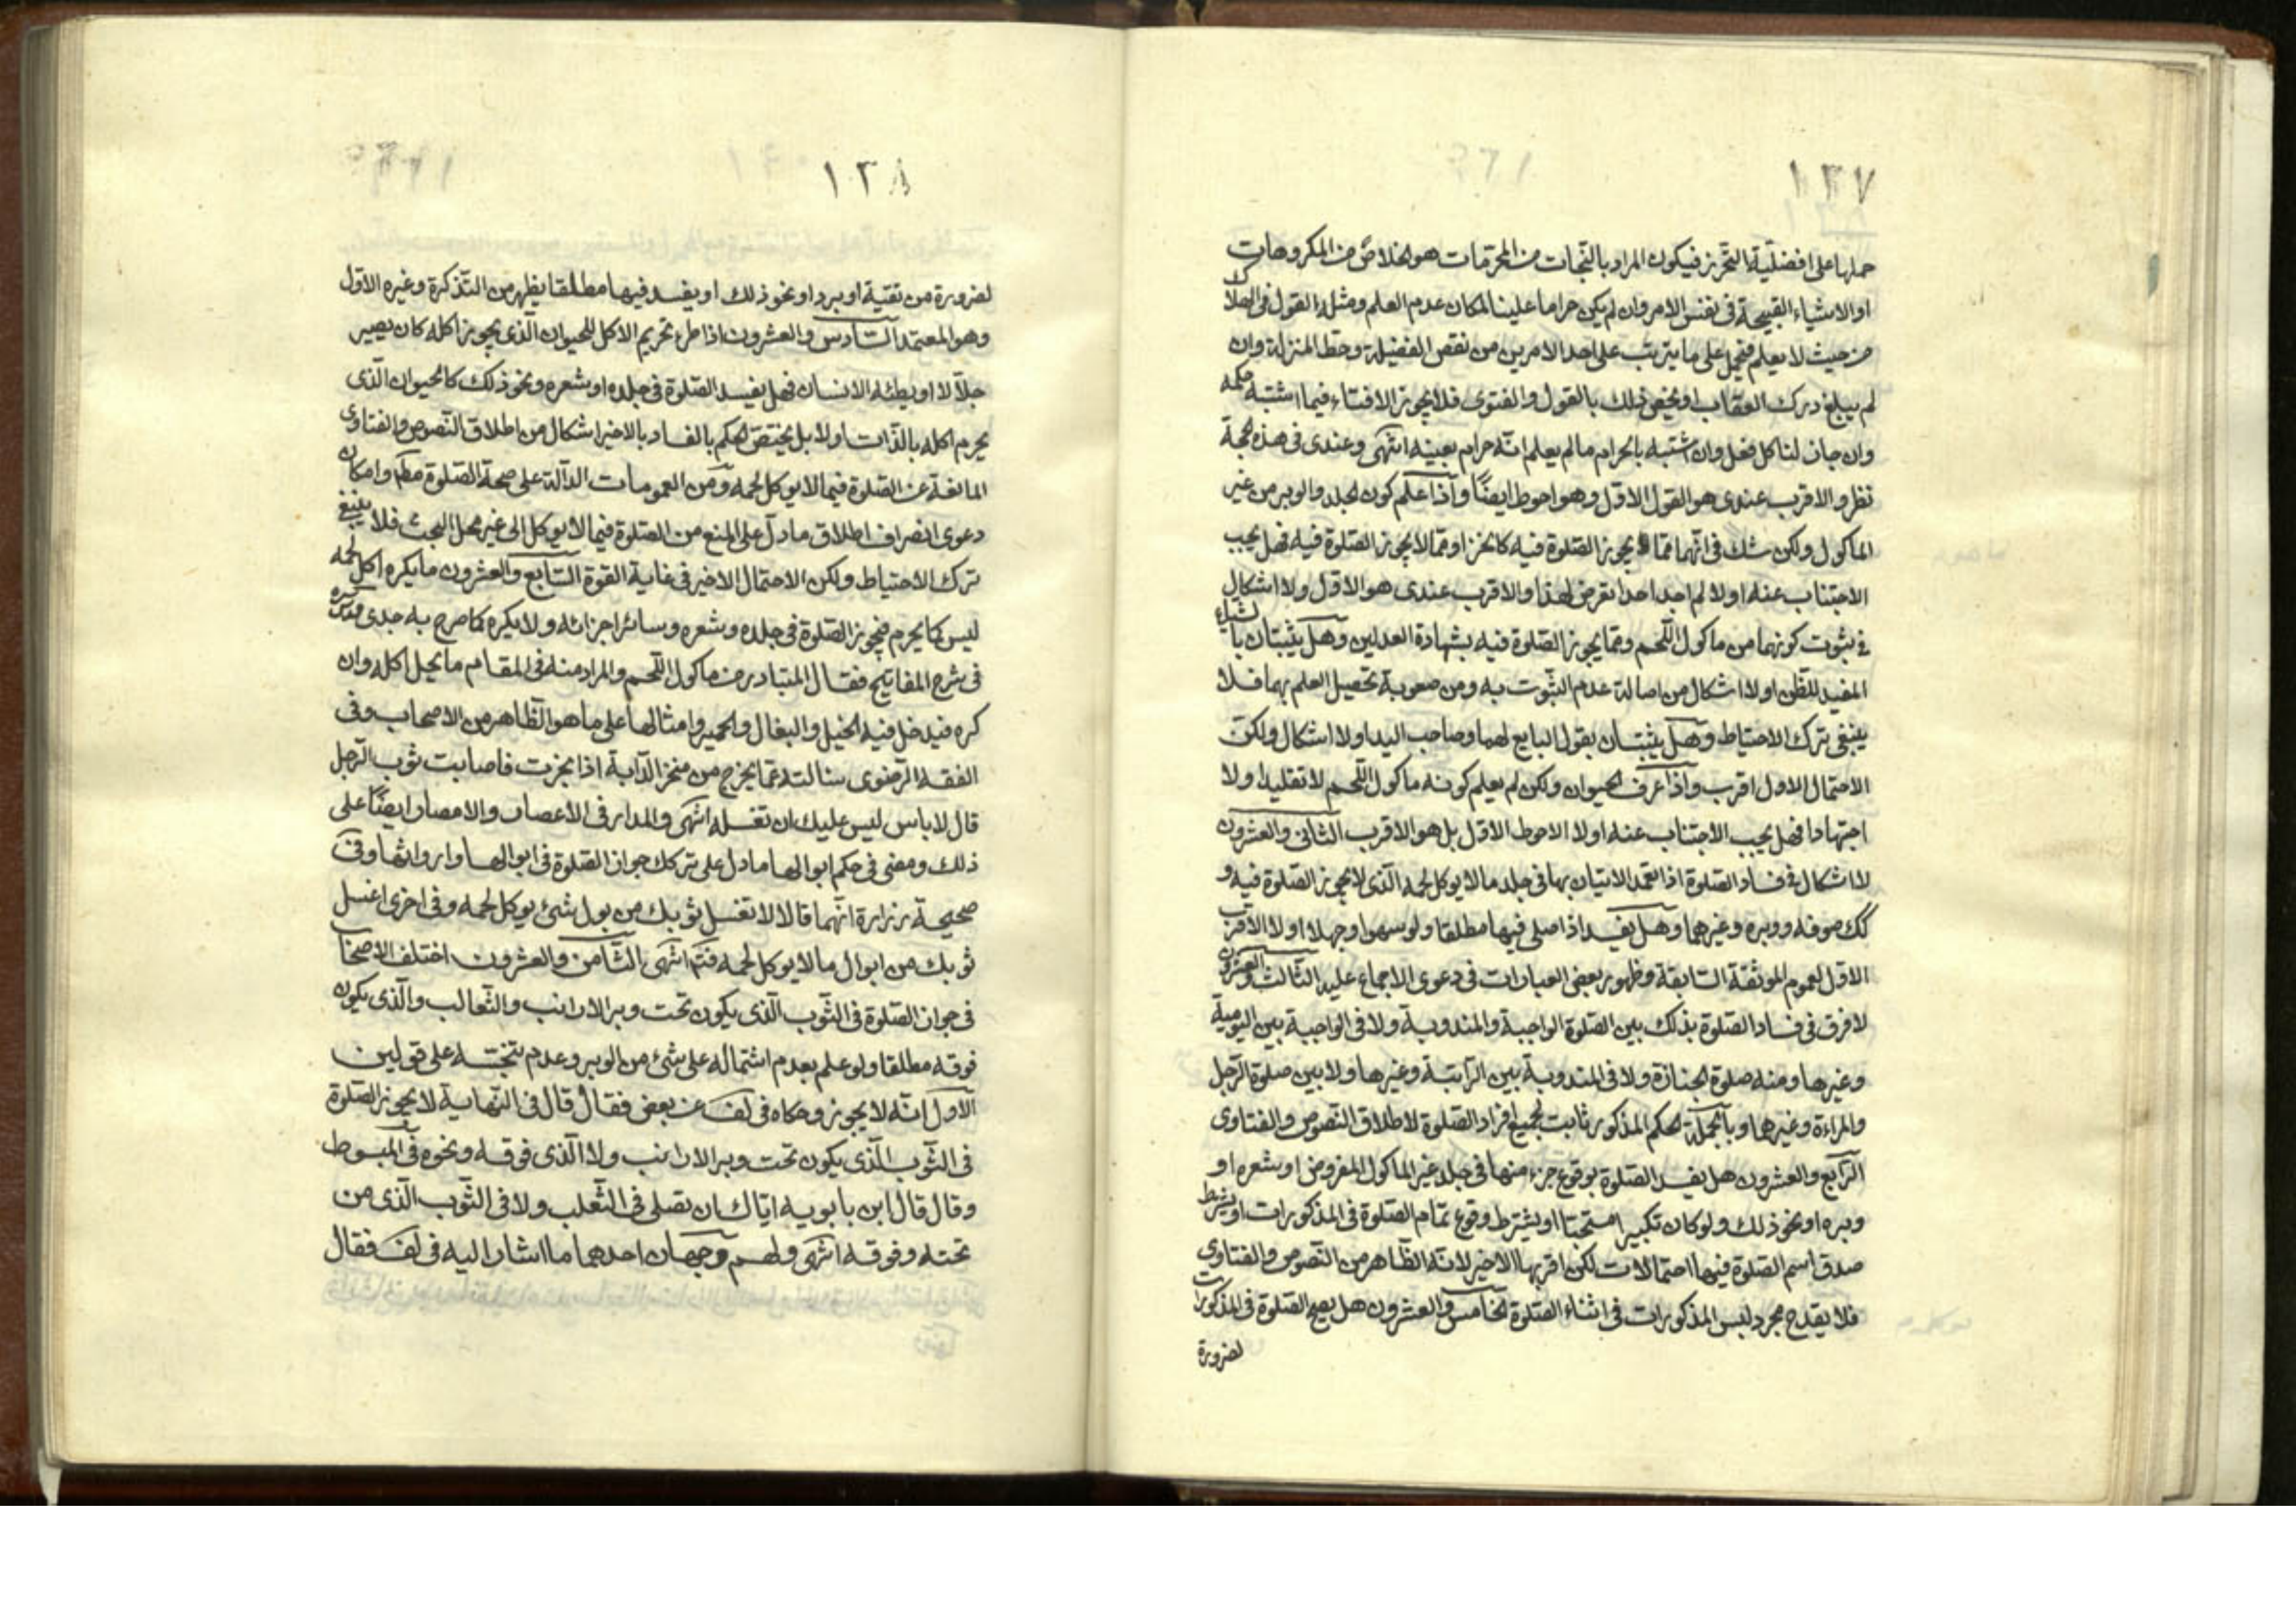 ١٣٧
حملها على افضلية التحرز فيكون المراد بالنجات من المحرمات هو الخلاص من المكروهات
او الاشياء القبيحة فى نفس الامر وان لم يكن حراما علينا لمكان عدم العلم ومثله القول فى الهلاك
من حيث لا يعلم فيحمل على ما يترتب على احد الامرين من نقص الفضيلة وحط المنزلة وان
لم يبلغ درك العقاب او يخص ذلك بالقول والفتوى فلا يجوز الافتاء فيما اشتبه حكمه
وان جاز لنا كل فعل وان اشتبه بالحرام ما لم يعلم انه حرام بعينه انتهى وعندى فى هذه الحجة
نظر والاقرب عندى هو القول الاول وهو احوط ايضًا واذا علم كون الجلد والوبر من غير
الماكول ولكن شك فى انهما مما يجوز الصلوة فيه كالخز او مما لا يجوز الصلوة فيه فهل يجب
الاجتناب عنه او لا لم اجد احدا تعرض لهذا والاقرب عندى هو الاول ولا اشكال
فى ثبوت كونهما من ماكول اللحم ومما يجوز الصلوة فيه بشهادة العدلين وهل يثبتان بالشياع
المفيد للظن او لا اشكال من اصالة عدم الثبوت به ومن صعوبة تحصيل العلم بهما فلا
ينبغى ترك الاحتياط وهل يثبتان بقول البايع لهما وصاحب اليد او لا اشكال ولكن
الاحتمال الاول اقرب واذا عرف الحيوان ولكن لم يعلم كونه ماكول اللحم لا تقليدا ولا
اجتهادا فهل يجب الاجتناب عنه او لا الاحوط الاول بل هو الاقرب الثانى والعشرون
لا اشكال فى فساد الصلوة اذا تعمد الاتيان بها فى جلد ما لا يوكل لحمه الذى لا يجوز الصلوة فيه و
كك صوفه ووبره وغيرهما وهل يفسد اذا صلى فيها مطلقا ولو سهوا وجهلا او لا الاقرب
الاول لعموم الموثقة السابقة وظهور بعض العبارات فى دعوى الاجماع عليه الثالث والعشرون
لا فرق فى فساد الصلوة بذلك بين الصلوة الواجبة والمندوبة ولا فى الواجبة بين اليومية
وغيرها ومنه صلوة الجنازة ولا فى المندوبة بين الراتبة وغيرها ولا بين صلوة الرجل
والمراءة وغيرهما وبالجملة الحكم المذكور ثابت لجميع افراد الصلوة لاطلاق النصوص والفتاوى
الرابع والعشرون هل يفسد الصلوة بوقوع جزء منها فى جلد غير الماكول المفروض او شعره او
وبره او نحو ذلك ولو كان تكبير استحبا او يشترط وقوع تمام الصلوة فى المذكورات او يشترط
صدق اسم الصلوة فيها احتمالات لكن اقربها الاخير لانه الظاهر من النصوص والفتاوى
فلا يقدح مجرد لبس المذكورات فى اثناء الصلوة الخامس والعشرون هل يصح الصلوة فى المذكورات
لضرورة
١٣٨
لضرورة من تقية او برد او نحو ذلك او يفسد فيها مطلقا يظهر من التذكرة وغيره الاول
وهو المعتمد السادس والعشرون اذا طرء تحريم الاكل للحيوان الذى يجوز اكله كان يصير
جلالا او يطئه الانسان فهل يفسد الصلوة فى جلده او شعره ونحو ذلك كالحيوان الذى
يحرم اكله بالذات او لا بل يختص الحكم بالفساد بالاخير اشكال من اطلاق النصوص والفتاوى
المانعة عن الصلوة فيما لا يوكل لحمه ومن العمومات الدالة على صحة الصلوة مطم وامكان
دعوى انصراف اطلاق ما دل على المنع من الصلوة فيما لا يوكل الى غير محل البحث فلا ينبغى
ترك الاحتياط ولكن الاحتمال الاخير فى غاية القوة السابع والعشرون ما يكره اكل لحمه
ليس كما يحرم فيجوز الصلوة فى جلده وشعره وسائر اجزائه ولا يكره كما صرح به جدى قدس سره
فى شرح المفاتيح فقال المتبادر من ماكول اللحم والمراد منه فى المقام ما يحل اكله وان
كره فيدخل فيه الخيل والبغال والحمير وامثالها على ما هو الظاهر من الاصحاب وفى
الفقه الرضوى سالته عما يخرج من منخر الدابة اذا نخرت فاصابت ثوب الرجل
قال لا باس ليس عليك ان تغسله انتهى والمدار فى الاعصار والامصار ايضًا على
ذلك ومضى فى حكم ابوالها ما دل على ترك جواز الصلوة فى ابوالها وارواثها وفى
صحيحة زرارة انهما قالا لا تغسل ثوبك من بول شئ يوكل لحمه وفى اخرى اغسل
ثوبك من ابوال ما لا يوكل لحمه فتم انتهى الثامن والعشرون اختلف الاصحاب
فى جواز الصلوة فى الثوب الذى يكون تحت وبر الارانب والثعالب والذى يكون
فوقه مطلقا ولو علم بعدم اشتماله على شئ من الوبر وعدم نتجته على قولين
الاول انه لا يجوز وحكاه فى لف عن بعض فقال قال فى النهاية لا يجوز الصلوة
فى الثوب الذى يكون تحت وبر الارانب ولا الذى فوقه ونحوه فى المبسوط
وقال قال ابن بابويه اياك ان تصلى فى الثعلب ولا فى الثوب الذى من
تحته وفوقه انتهى ولهم وجهان احدهما ما اشار اليه فى لف فقال